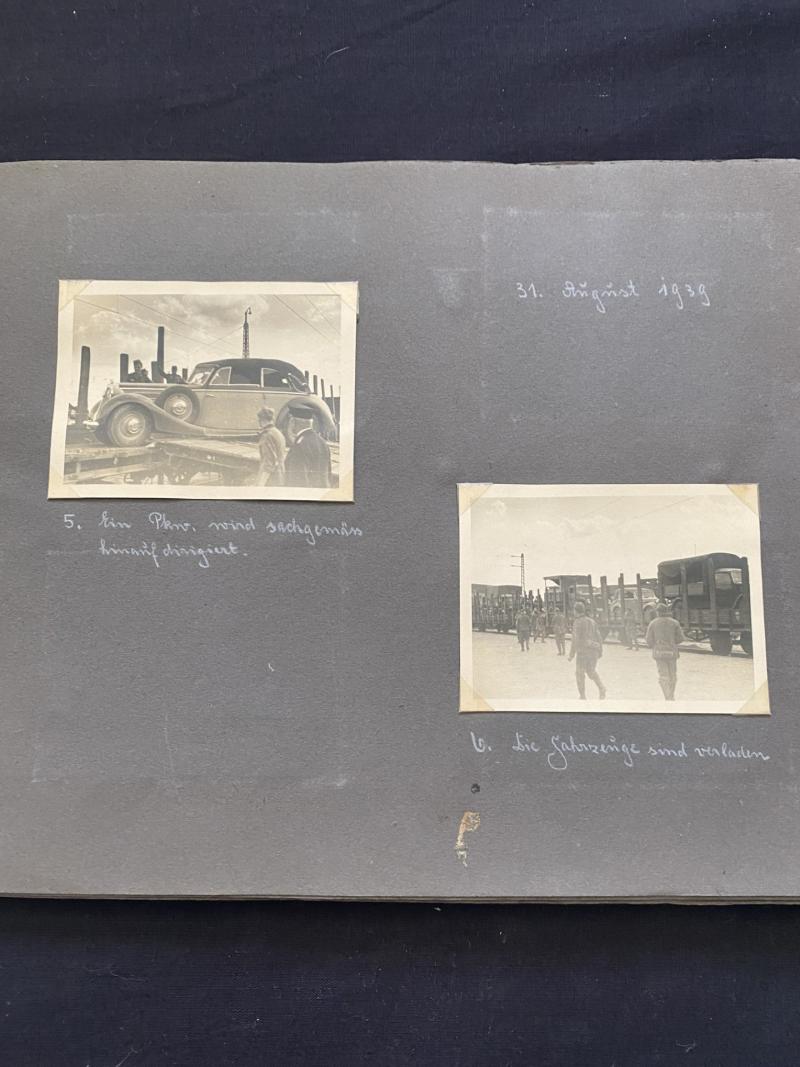 31. August 1939
5. Ein Pkw. wird sachgemäss
hinauf dirigiert.
6. Die Fahrzeuge sind verladen